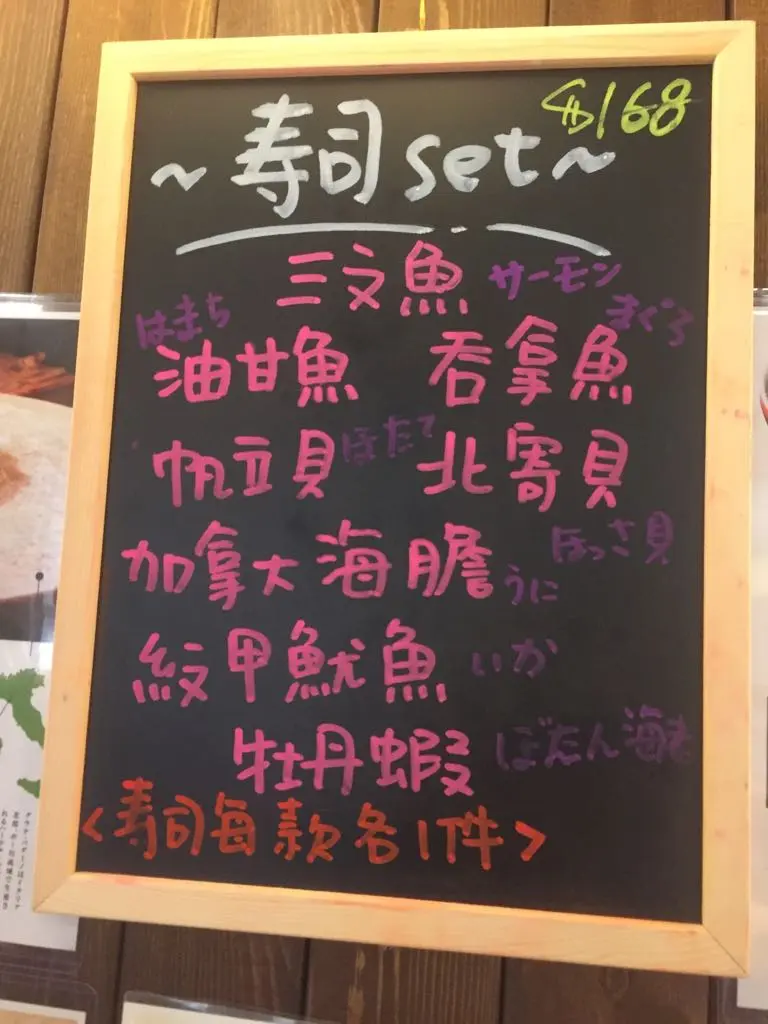 $168
~寿司set~
三文魚 サーモン
はまち まぐろ
油甘魚 吞拿魚
帆立貝 ほたて 北寄貝
ほっき貝
加拿大海膽 うに
紋甲魷魚 いか
牡丹蝦 ぼたん海老
<寿司每款各1件>